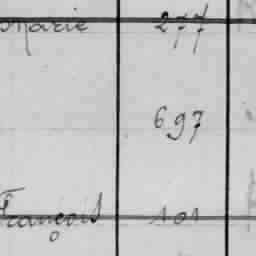 Marie 277
697
François 101